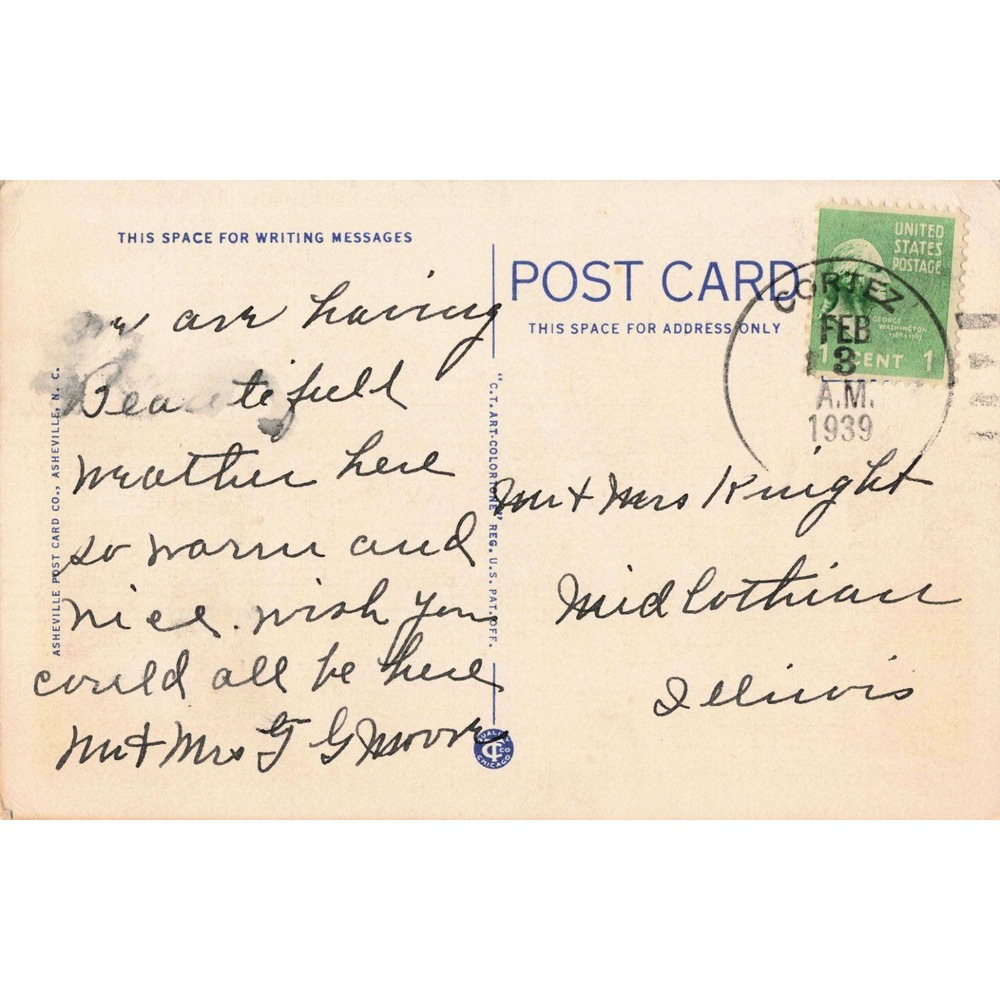 THIS SPACE FOR WRITING MESSAGES
we are having
Beautifull
weather here
so warm and
nice. wish you
could all be here
Mr & Mrs F G Moore
ASHEVILLE POST CARD CO., ASHEVILLE, N. C.
"C.T. ART-COLORTONE" REG. U.S. PAT. OFF.
QUALITY
CT CO
CHICAGO
POST CARD
THIS SPACE FOR ADDRESS ONLY
UNITED
STATES
POSTAGE
GEORGE
WASHINGTON
1789-1797
1 CENT 1
CORTEZ
FEB
3
A.M.
1939
Mr & Mrs Knight
Midlothian
Illinois